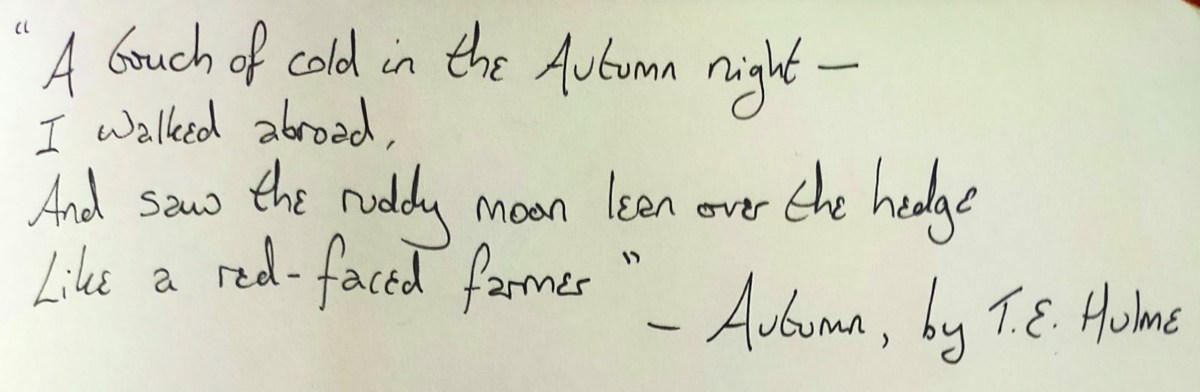 "A touch of cold in the Autumn night —
I walked abroad,
And saw the ruddy moon lean over the hedge
Like a red-faced farmer"
— Autumn, by T.E. Hulme